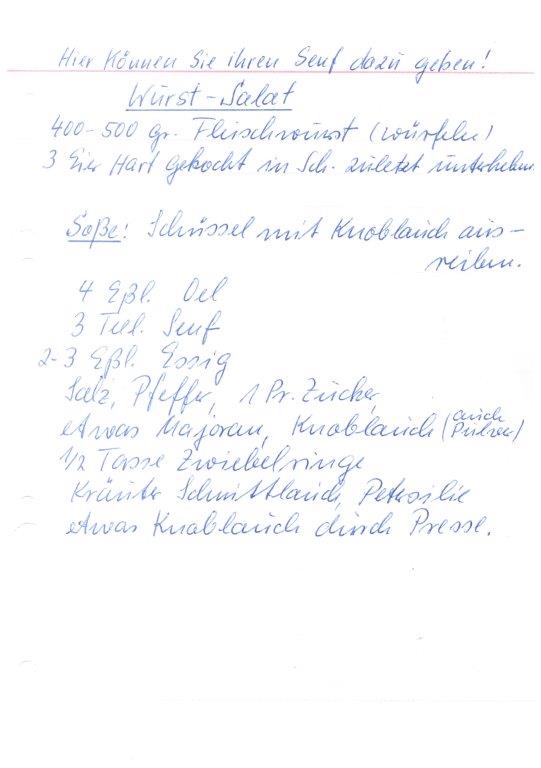 Hier können Sie ihren Senf dazu geben!
Wurst-Salat
400-500 gr. Fleischwurst (würfeln)
3 Eier Hart gekocht in Sch. zuletzt unterheben.
Soße: Schüssel mit Knoblauch aus-
reiben.
4 Eßl. Oel
3 Teel. Senf
2-3 Eßl. Essig
Salz, Pfeffer, 1 Pr. Zucker,
etwas Majoran, Knoblauch (auch Pulver)
1/2 Tasse Zwiebelringe
Kräuter Schnittlauch, Petersilie
etwas Knoblauch durch Presse.